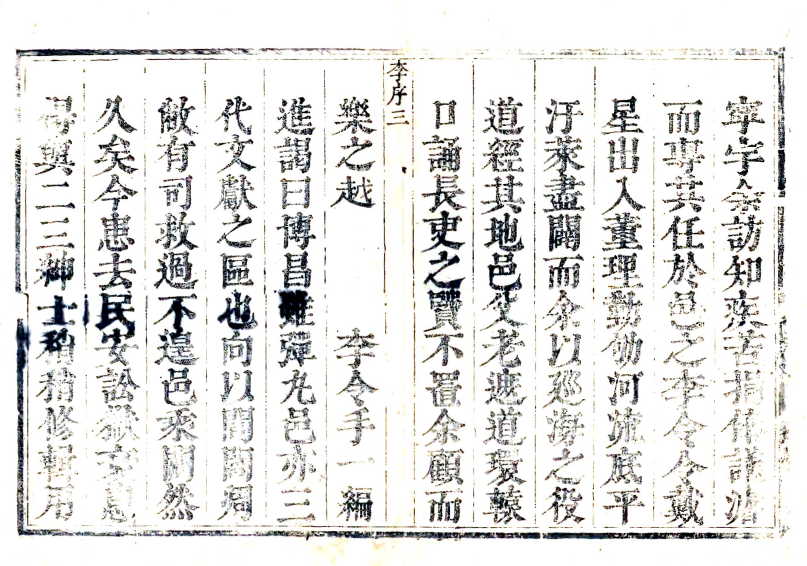 寧宇余訪知疾苦捐俸議濬
而專其任於邑之李令令戴
星出入董理勤劬河流底平
汙萊盡闢而余以巡海之役
道徑其地邑父老遮道環轅
口誦長吏之賢不置余顧而
李序三
樂之越　李令手一編
進謁曰博昌雖彈丸邑亦三
代文獻之區也向以閭閻凋
敝有司救過不遑邑乘闕然
久矣今患去民安訟獄衰息
得與二三紳士稍稍修輯用